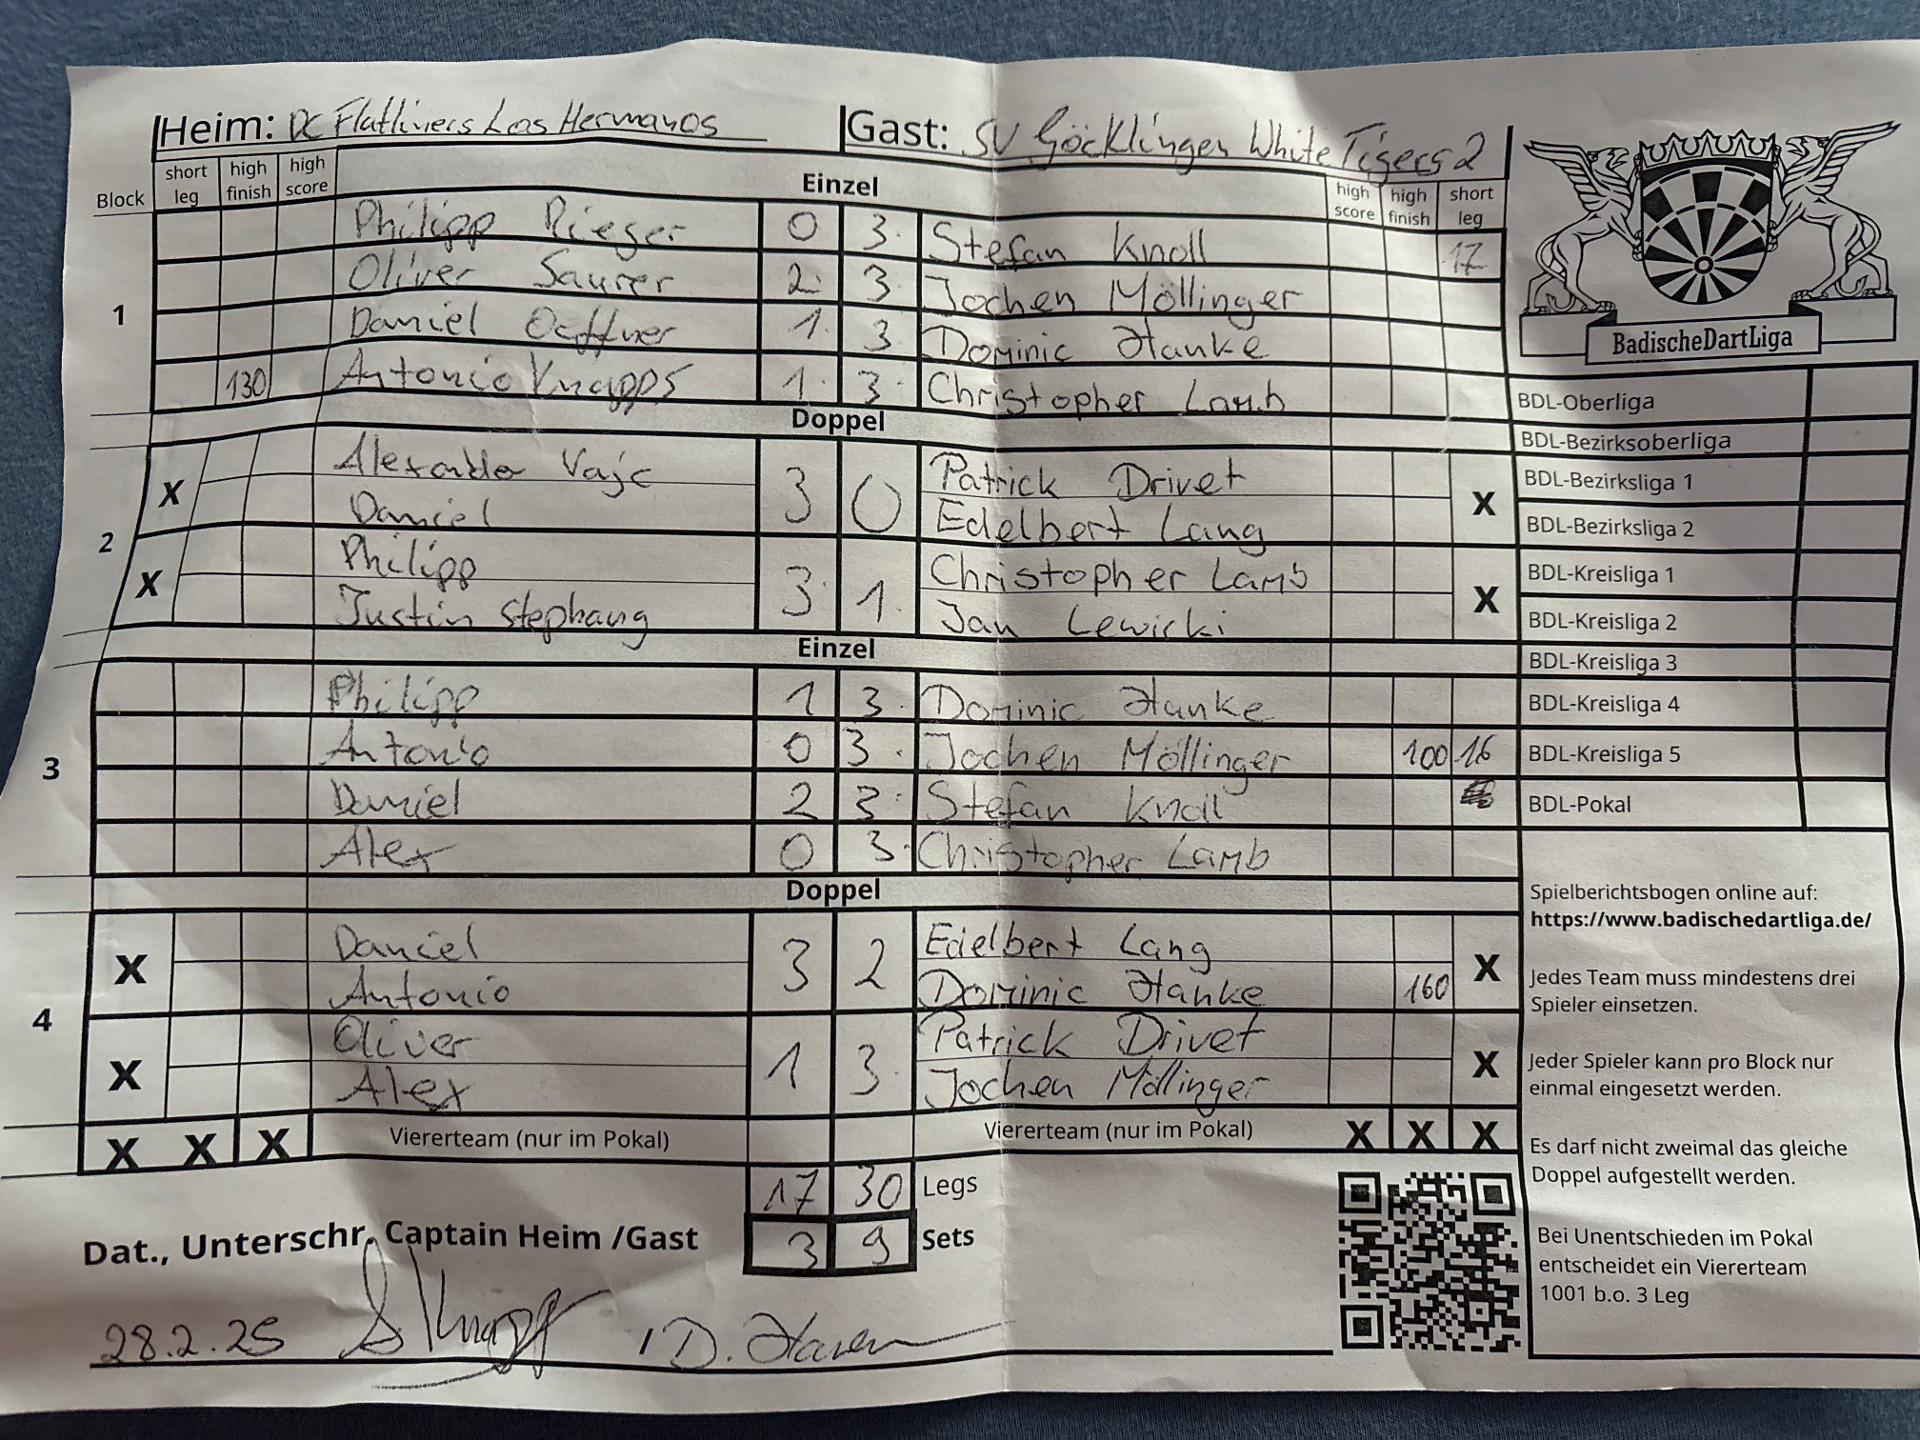 Heim: DC Flatliners Los Hermanos Gast: SV Göcklingen White Tigers 2
Block short leg high finish high score Einzel high score high finish short leg
1
Philipp Rieger 0 3 Stefan Knoll 17
Oliver Saurer 2 3 Jochen Möllinger
Daniel Oeffner 1 3 Dominic Hanke
130 Antonio Knapps 1 3 Christopher Lamb
Doppel
2
X Alexander Vajc 3 0 Patrick Drivet X
Daniel Edelbert Lang
X Philipp 3 1 Christopher Lamb X
Justin Stephang Jan Lewicki
Einzel
3
Philipp 1 3 Dominic Hanke
Antonio 0 3 Jochen Möllinger 100 16
Daniel 2 3 Stefan Knoll
Alex 0 3 Christopher Lamb
Doppel
4
X Daniel 3 2 Edelbert Lang X
Antonio Dominic Hanke 160
X Oliver 1 3 Patrick Drivet X
Alex Jochen Möllinger
X X X Viererteam (nur im Pokal) Viererteam (nur im Pokal) X X X
17 30 Legs
3 9 Sets
Dat., Unterschr. Captain Heim /Gast
28.2.25 / D.
BadischeDartLiga
BDL-Oberliga
BDL-Bezirksoberliga
BDL-Bezirksliga 1
BDL-Bezirksliga 2
BDL-Kreisliga 1
BDL-Kreisliga 2
BDL-Kreisliga 3
BDL-Kreisliga 4
BDL-Kreisliga 5
BDL-Pokal
Spielberichtsbogen online auf:
https://www.badischedartliga.de/
Jedes Team muss mindestens drei
Spieler einsetzen.
Jeder Spieler kann pro Block nur
einmal eingesetzt werden.
Es darf nicht zweimal das gleiche
Doppel aufgestellt werden.
Bei Unentschieden im Pokal
entscheidet ein Viererteam
1001 b.o. 3 Leg